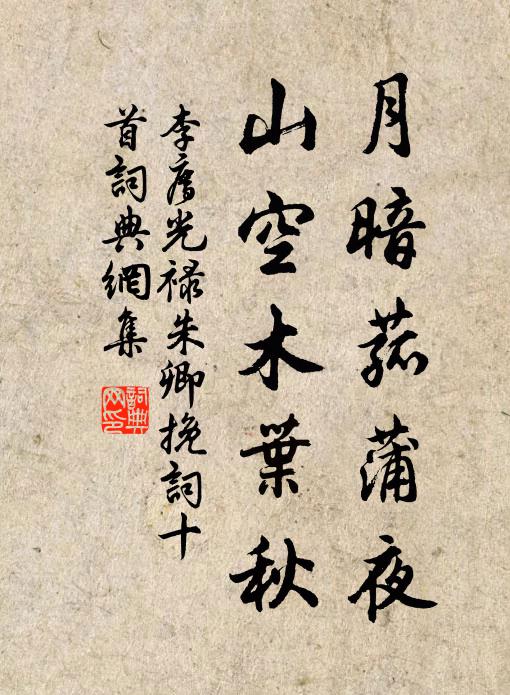 月暗菰蒲夜
山空木葉秋
李光禄朱卿挽詞十
首詞典網集
詞典
网印